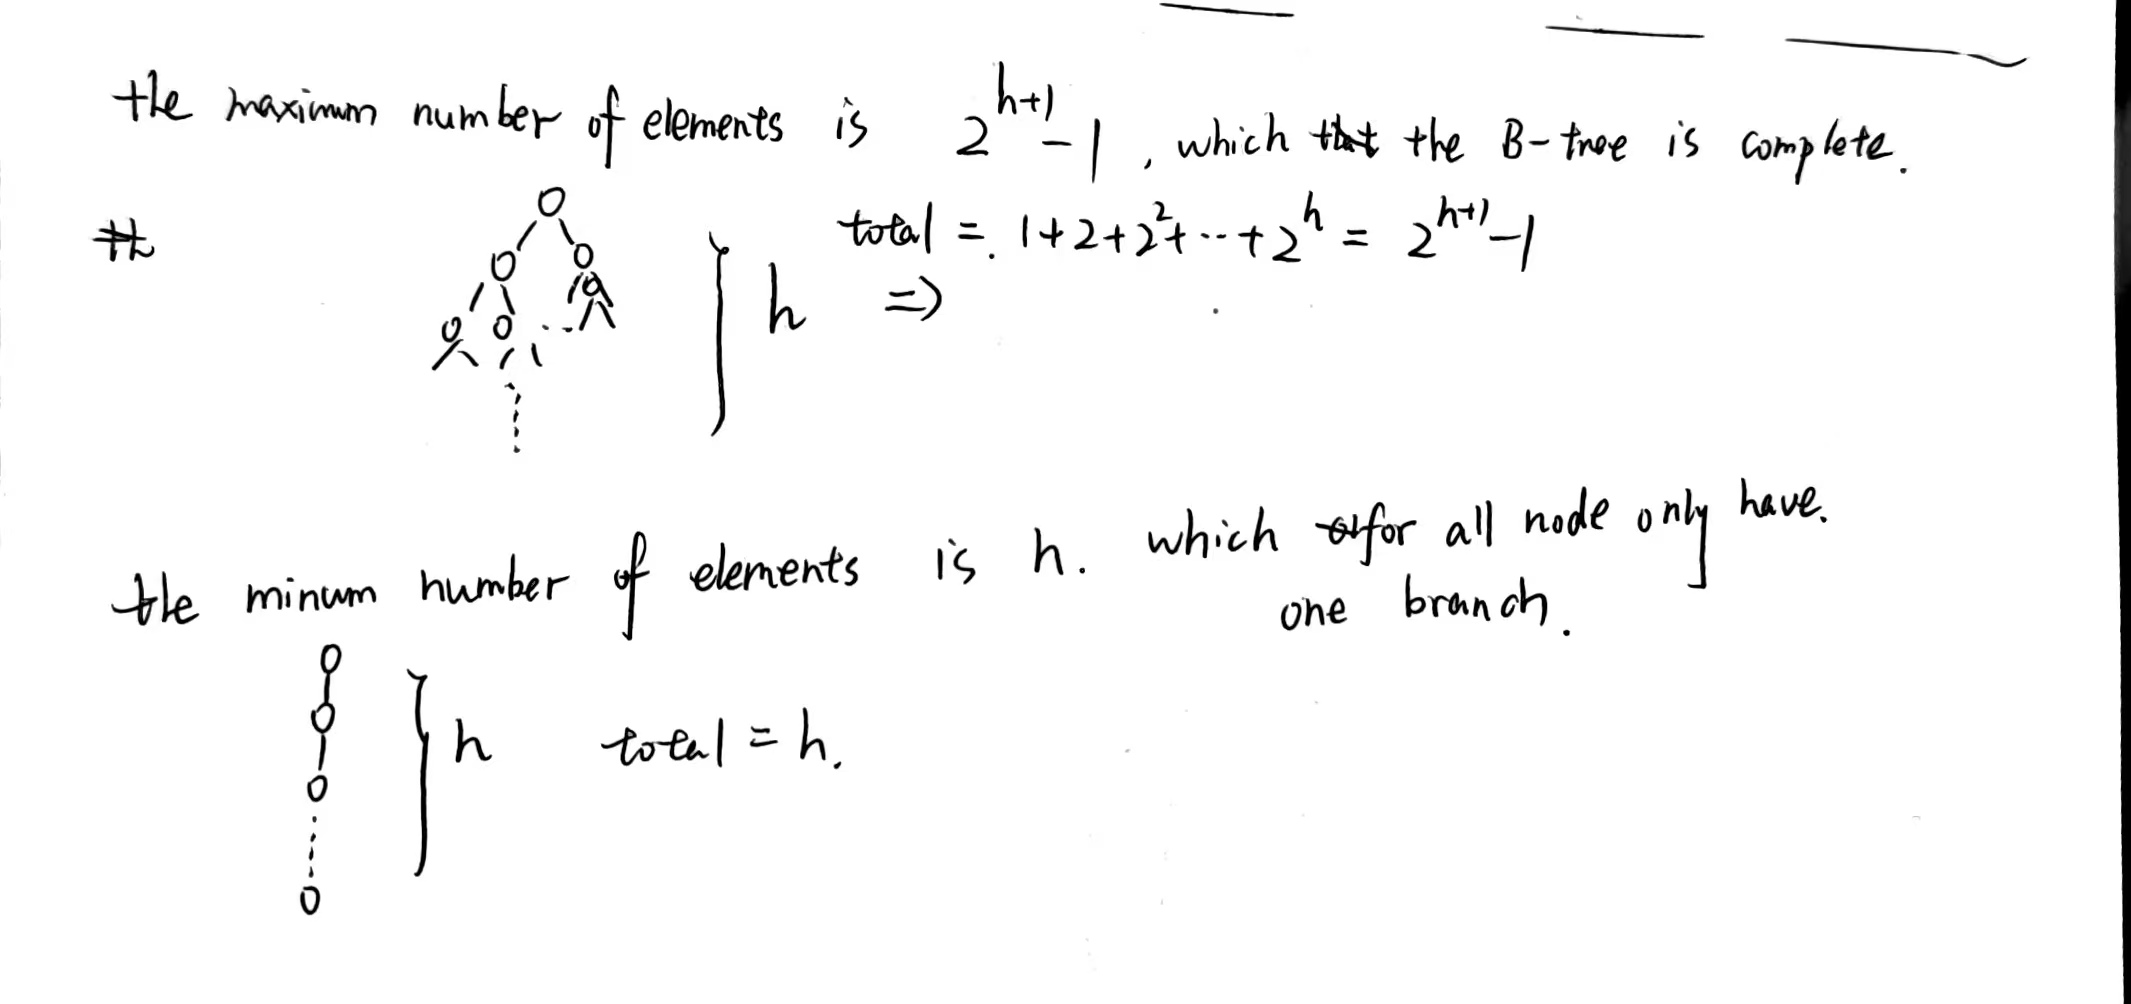 the maximum number of elements is 2^{h+1}-1, which the B-tree is complete.
total = 1+2+2^2+...+2^h = 2^{h+1}-1
h =>
the minum number of elements is h. which for all node only have.
one branch.
h total = h.